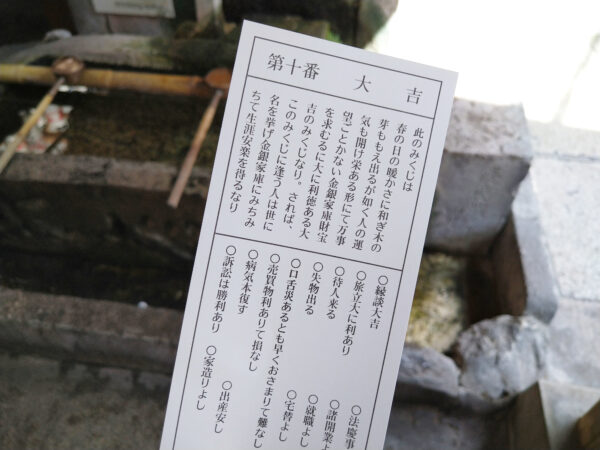 第十番 大吉
此のみくじは
春の日の暖かさに和ぎ木の
芽ももえ出るが如く人の運
気も開け栄ある形にて万事
望ごとかない金銀家庫財宝
を求むるに大に利徳ある大
吉のみくじなり。されば、
このみくじに逢う人は世に
名を挙げ金銀家庫にみちみ
ちて生涯安楽を得るなり
○縁談大吉
○旅立大に利あり
○待人来る
○失物出る
○口舌災あるとも早くおさまりて難なし
○売買物利ありて損なし
○病気本復す
○訴訟は勝利あり
○法慶事
○諸開業
○就職よし
○宅替よし
○出産安し
○家造りよし